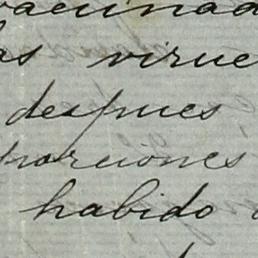 vacunad
as virue
despues
porciones
habido